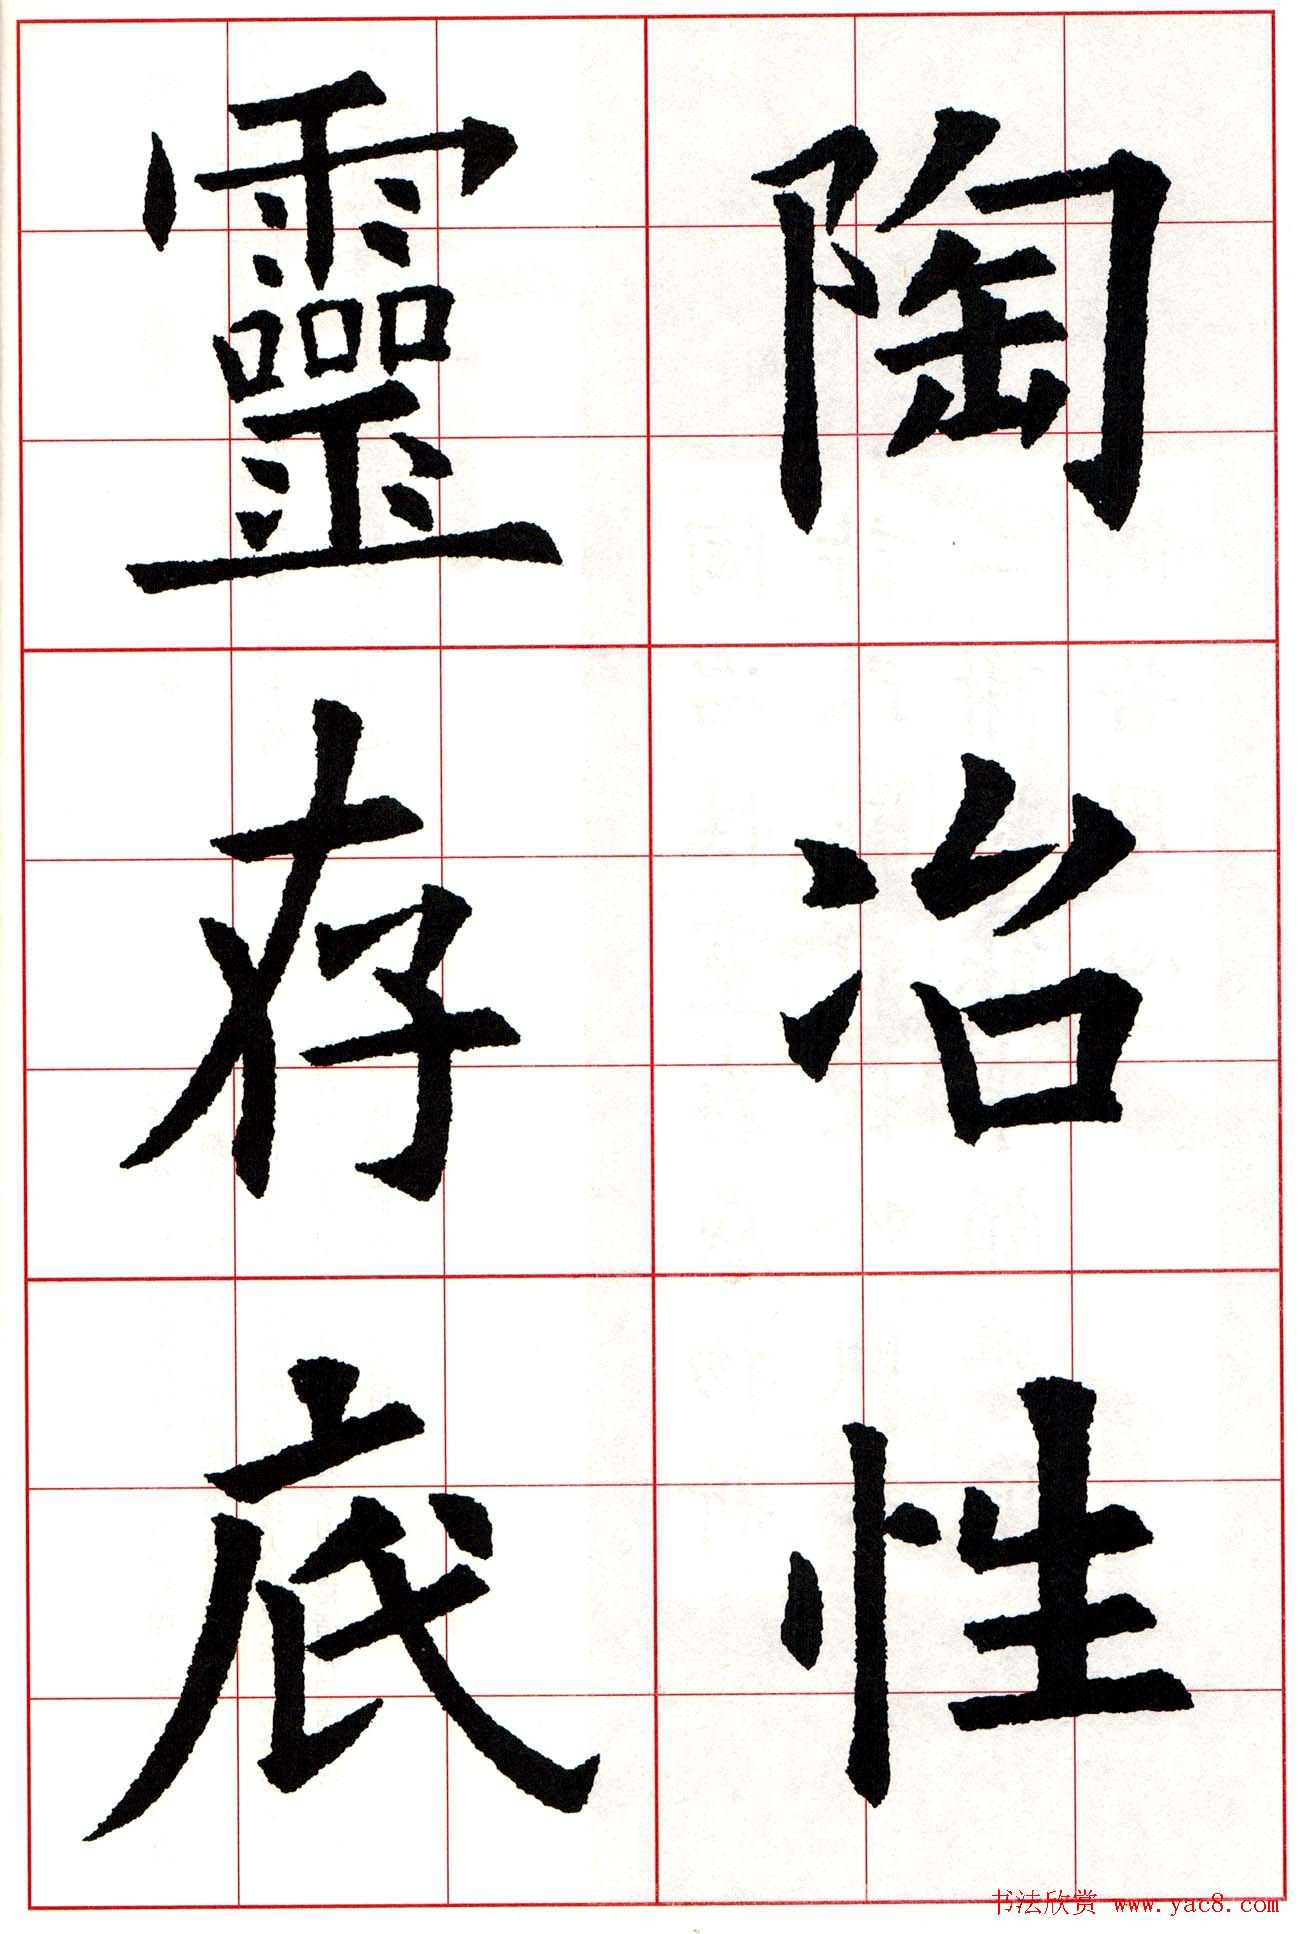 陶冶性
靈存底
书法欣赏 www.yac8.com